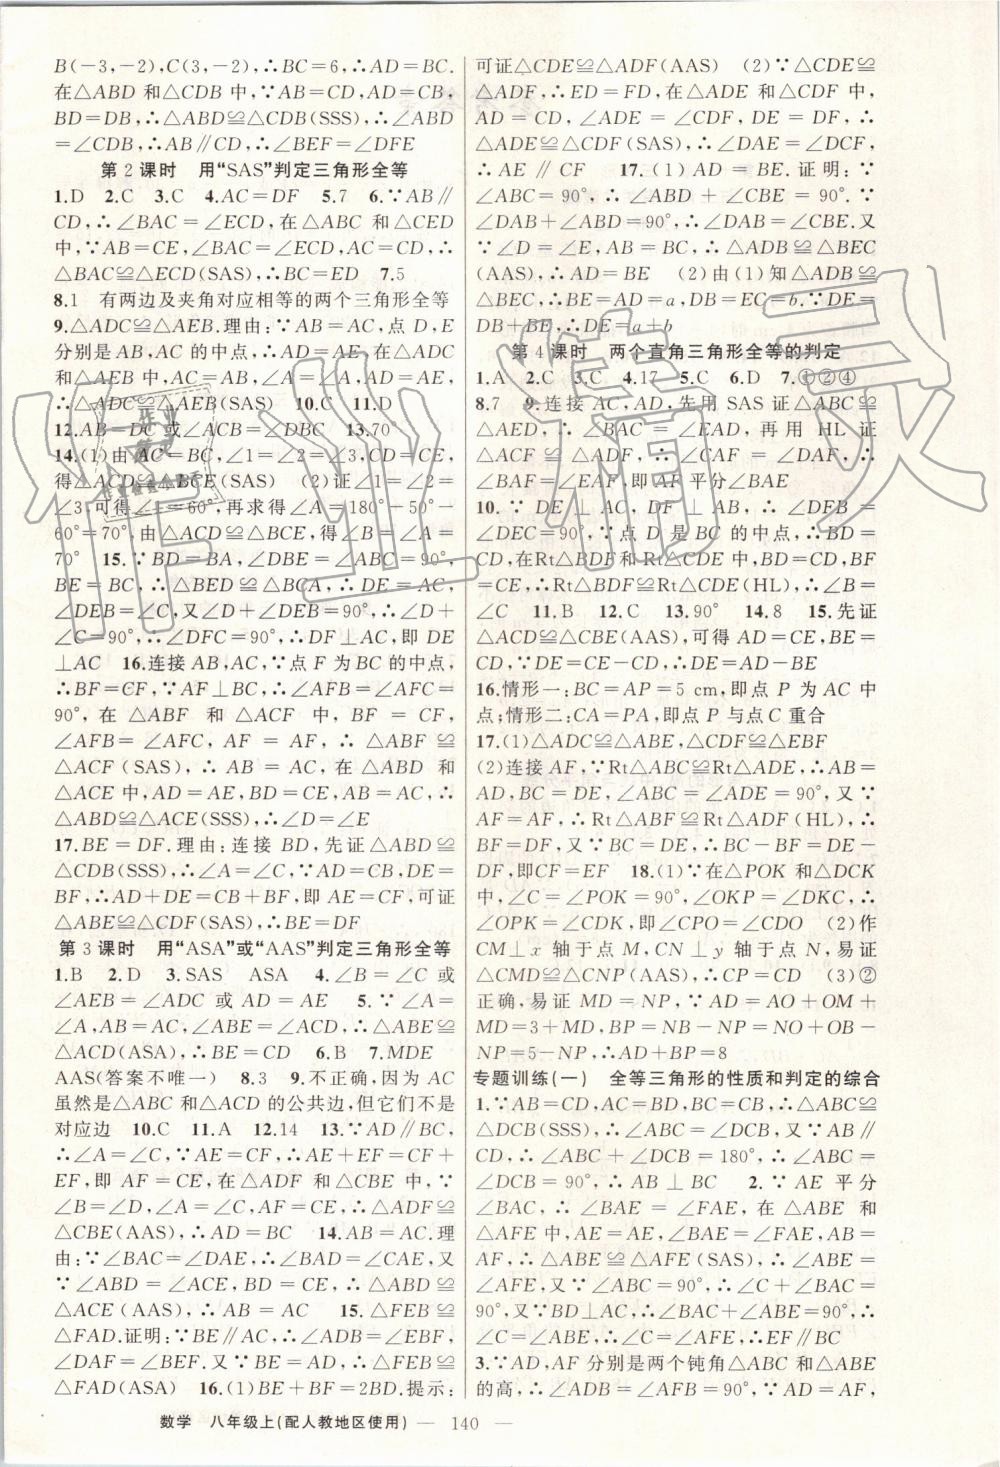 B(-3,-2),C(3,-2),∴BC=6,∴AD=BC.
在△ABD 和△CDB 中,∵AB=CD,AD=CB,
BD=DB,∴△ABD≌△CDB(SSS),∴∠ABD
=∠CDB,∴AB∥CD,∴∠BEF=∠DFE
第 2 课时 用“SAS”判定三角形全等
1.D 2.C 3.C 4.AC=DF 5.7 6.∵AB∥
CD,∴∠BAC=∠ECD,在△ABC 和△CED
中,∵AB=CE,∠BAC=∠ECD,AC=CD,∴
△BAC≌△ECD(SAS),∴BC=ED 7.5
8.1 有两边及夹角对应相等的两个三角形全等
9.△ADC≌△AEB.理由:∵AB=AC,点 D,E
分别是 AB,AC 的中点,∴AD=AE,在△ADC
和△AEB 中,AC=AB,∠A=∠A,AD=AE,
∴△ADC≌△AEB(SAS) 10.C 11.D
12.AB=DC 或∠ACB=∠DBC 13.70°
14.(1)由 AC=BC,∠1=∠2=∠3,CD=CE,
得△ACD≌△BCE(SAS) (2)证∠1=∠2=
∠3,可得∠1=60°,再求得∠A=180°-50°-
60°=70°,由△ACD≌△BCE,得∠B=∠A=
70° 15.∵BD=BA,∠DBE=∠ABC=90°,
BE=BC,∴△BED≌△BCA,∴DE=AC,
∠DEB=∠C,又∠D+∠DEB=90°,∴∠D+
∠C=90°,∴∠DFC=90°,∴DF⊥AC,即 DE
⊥AC 16.连接 AB,AC,∵点 F 为 BC 的中点,
∴BF=CF,∵AF⊥BC,∴∠AFB=∠AFC=
90°,在△ABF 和△ACF 中,BF=CF,
∠AFB=∠AFC,AF=AF,∴△ABF≌
△ACF(SAS),∴AB=AC,在△ABD 和
△ACE 中,AD=AE,BD=CE,AB=AC,∴
△ABD≌△ACE(SSS),∴∠D=∠E
17.BE=DF.理由:连接 BD,先证△ABD≌
△CDB(SSS),∴∠A=∠C,∵AD=CB,DE=
BF,∴AD+DE=CB+BF,即 AE=CF,可证
△ABE≌△CDF(SAS),∴BE=DF
第 3 课时 用“ASA”或“AAS”判定三角形全等
1.B 2.D 3.SAS ASA 4.∠B=∠C 或
∠AEB=∠ADC 或 AD=AE 5.∵∠A=
∠A,AB=AC,∠ABE=∠ACD,∴△ABE≌
△ACD(ASA),∴BE=CD 6.B 7.MDE
AAS(答案不唯一) 8.3 9.不正确,因为 AC
虽然是△ABC 和△ACD 的公共边,但它们不是
对应边 10.C 11.A 12.14 13.∵AD∥BC,
∴∠A=∠C,∵AE=CF,∴AE+EF=CF+
EF,即 AF=CE,在△ADF 和△CBE 中,∵
∠B=∠D,∠A=∠C,AF=CE,∴△ADF≌
△CBE(AAS),∴AD=BC 14.AB=AC.理
由:∵∠BAC=∠DAE,∴∠BAD=∠CAE,又
∵∠ABD=∠ACE,BD=CE,∴△ABD≌
△ACE(AAS),∴AB=AC 15.△FEB≌
△FAD.证明:∵BE∥AC,∴∠ADB=∠EBF,
∠DAF=∠BEF.又∵BE=AD,∴△FEB≌
△FAD(ASA) 16.(1)BE+BF=2BD.提示:
可证△CDE≌△ADF(AAS) (2)∵△CDE≌
△ADF,∴ED=FD,在△ADE 和△CDF 中,
AD=CD,∠ADE=∠CDF,DE=DF,∴
△ADE≌△CDF(SAS),∴∠DAE=∠DCF,
∴AE∥CF 17.(1)AD=BE.证明:∵
∠ABC=90°,∴∠ABD+∠CBE=90°.∵
∠DAB+∠ABD=90°,∴∠DAB=∠CBE.又
∵∠D=∠E,AB=BC,∴△ADB≌△BEC
(AAS),∴AD=BE (2)由(1)知△ADB≌
△BEC,∴BE=AD=a,DB=EC=b.∵DE=
DB+BE,∴DE=a+b
第 4 课时 两个直角三角形全等的判定
1.A 2.C 3.C 4.17 5.C 6.D 7.①②④
8.7 9.连接 AC,AD,先用 SAS 证△ABC≌
△AED,∴∠BAC=∠EAD,再用 HL 证
△ACF≌△ADF,∴∠CAF=∠DAF,∴
∠BAF=∠EAF,即 AF 平分∠BAE
10.∵DE⊥AC,DF⊥AB,∴∠DFB=
∠DEC=90°,∵点 D 是 BC 的中点,∴BD=
CD,在Rt△BDF 和Rt△CDE 中,BD=CD,BF
=CE,∴Rt△BDF≌Rt△CDE(HL),∴∠B=
∠C 11.B 12.C 13.90° 14.8 15.先证
△ACD≌△CBE(AAS),可得 AD=CE,BE=
CD,∵DE=CE-CD,∴DE=AD-BE
16.情形一:BC=AP=5 cm,即点 P 为 AC 中
点;情形二:CA=PA,即点 P 与点 C 重合
17.(1)△ADC≌△ABE,△CDF≌△EBF
(2)连接 AF,∵Rt△ABC≌Rt△ADE,∴AB=
AD,BC=DE,∠ABC=∠ADE=90°,又∵
AF=AF,∴Rt△ABF≌Rt△ADF(HL),∴
BF=DF,又∵BC=DE,∴BC-BF=DE-
DF,即CF=EF 18.(1)∵在△POK 和△DCK
中,∠C=∠POK=90°,∠OKP=∠DKC,∴
∠OPK=∠CDK,即∠CPO=∠CDO (2)作
CM⊥x 轴于点 M,CN⊥y 轴于点 N,易证
△CMD≌△CNP(AAS),∴CP=CD (3)②
正确,易证 MD=NP,∵AD=AO+OM+
MD=3+MD,BP=NB-NP=NO+OB-
NP=5-NP,∴AD+BP=8
专题训练(一) 全等三角形的性质和判定的综合
1.∵AB=CD,AC=BD,BC=CB,∴△ABC≌
△DCB(SSS),∴∠ABC=∠DCB,又∵AB∥
CD,∴∠ABC+∠DCB=180°,∴∠ABC=
∠DCB=90°,∴AB⊥BC 2.∵AE 平分
∠BAC,∴∠BAE=∠FAE,在△ABE 和
△AFE 中,AE=AE,∠BAE=∠FAE,AB=
AF,∴△ABE≌△AFE(SAS),∴∠ABE=
∠AFE,又∵∠ABC=90°,∴∠C+∠BAC=
90°,又∵BD⊥AC,∴∠BAC+∠ABE=90°,∴
∠C=∠ABE,∴∠C=∠AFE,∴EF∥BC
3.∵AD,AF 分别是两个钝角△ABC 和△ABE
的高,∴∠ADB=∠AFB=90°,∵AD=AF,
数学 八年级上(配人教地区使用) — 140 —
作业精灵